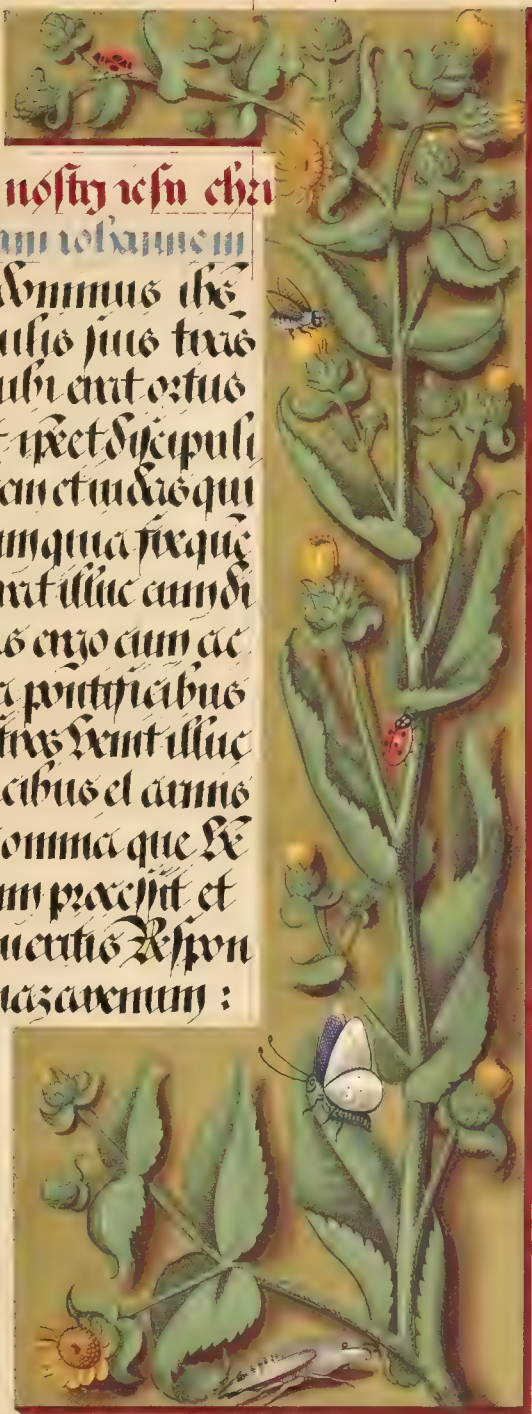 nostrj iesu chri
am iohannem
dominus ihs
ulis suis trãs
ubi erat ortus
t ipe et discipuli
em et iudas qui
um quia freque
rat illuc cum di
s ergo cum ac
a pontificibus
tros venit illuc
cibus et armis
omnia que ve
m processit et
ueritis Respon
nazarenum :